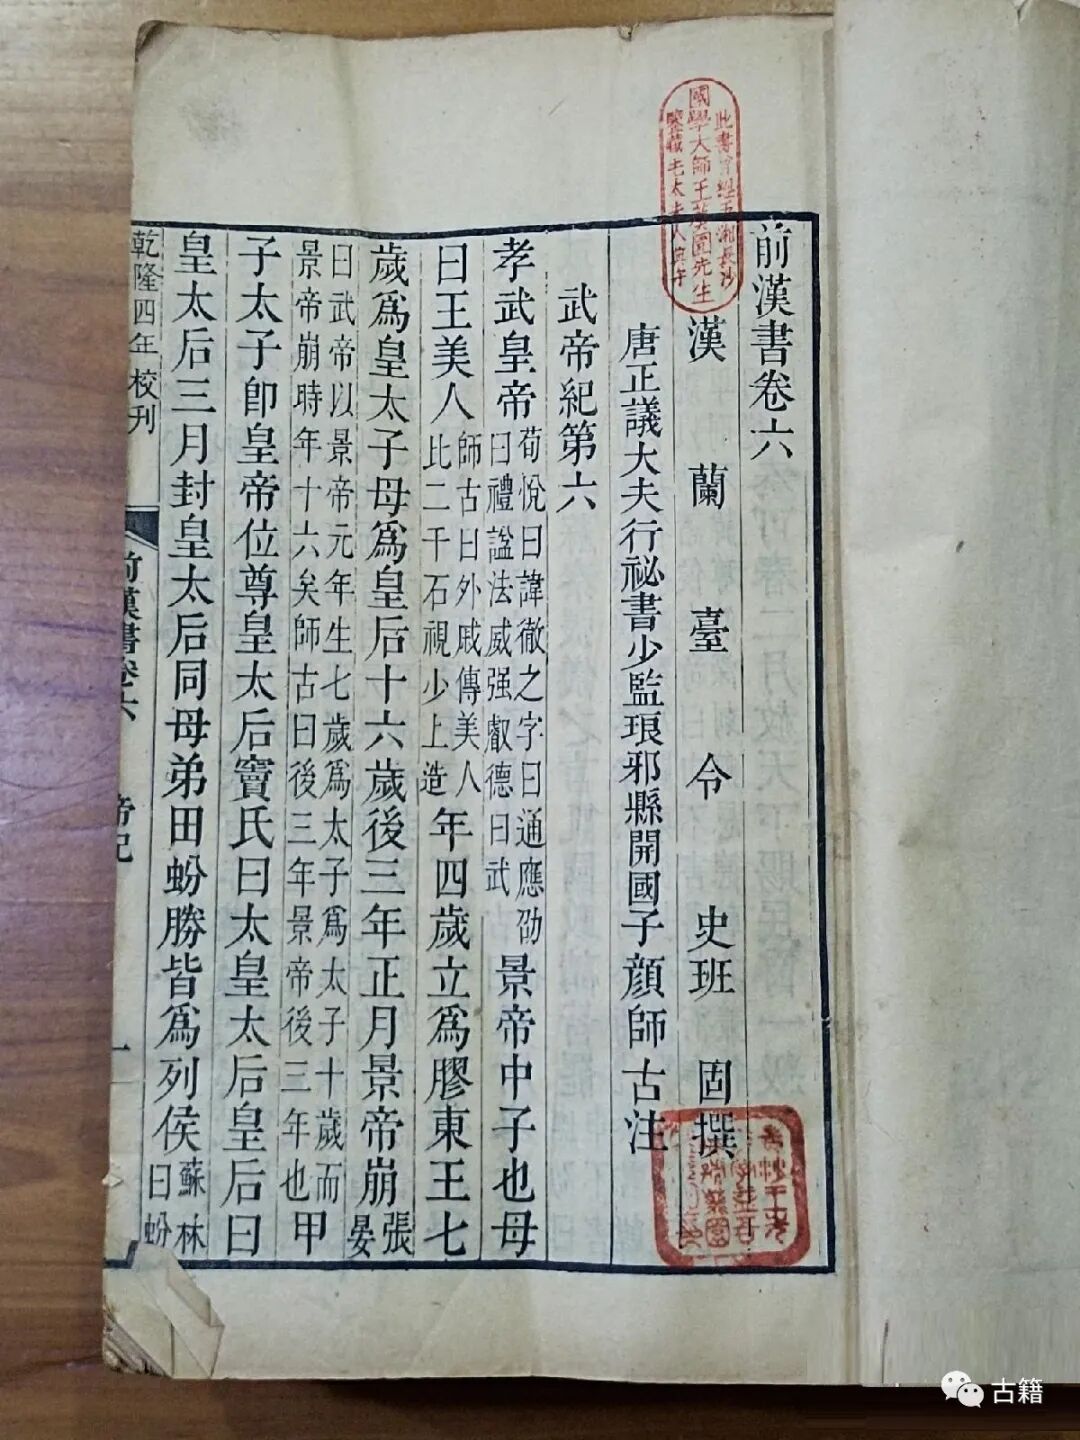 前漢書卷六
漢蘭臺令史班固撰
唐正議大夫行祕書少監琅邪縣開國子顏師古注
武帝紀第六
孝武皇帝
荀悅曰諱徹之字曰通應劭
曰禮諡法威强叡德曰武
景帝中子也母
曰王美人
師古曰外戚傳美人
比二千石視少上造
年四歲立爲膠東王七
歲爲皇太子母爲皇后十六歲後三年正月景帝崩
張
晏
曰武帝以景帝元年生七歲爲太子爲太子十歲而
景帝崩時年十六矣師古曰後三年景帝後三年也
甲
子太子卽皇帝位尊皇太后竇氏曰太皇太后皇后曰
皇太后三月封皇太后同母弟田蚡勝皆爲列侯
蘇林
曰蚡
乾隆四年校刊
前漢書卷六
帝紀
一
此書曾經
長沙
國學大師王葵園先生
鑒藏
古籍